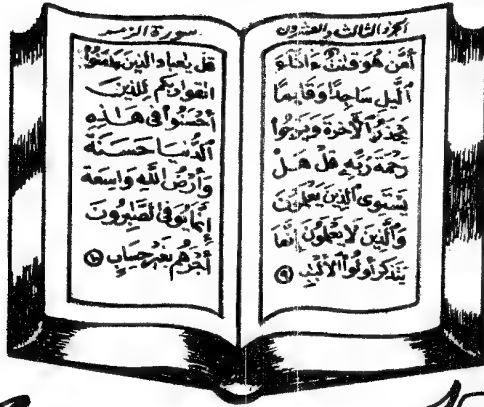 الجزء الثالث والعشرون
أَمَّنْ هُوَ قَٰنِتٌ ءَانَآءَ
ٱلَّيْلِ سَاجِدًا وَقَآئِمًا
يَحْذَرُ ٱلْآخِرَةَ وَيَرْجُوا۟
رَحْمَةَ رَبِّهِۦ قُلْ هَلْ
يَسْتَوِى ٱلَّذِينَ يَعْلَمُونَ
وَٱلَّذِينَ لَا يَعْلَمُونَ إِنَّمَا
يَتَذَكَّرُ أُو۟لُوا۟ ٱلْأَلْبَٰبِ ٩
سورة الزمر
قُلْ يَٰعِبَادِ ٱلَّذِينَ ءَامَنُوا۟
ٱتَّقُوا۟ رَبَّكُمْ لِلَّذِينَ
أَحْسَنُوا۟ فِى هَٰذِهِ
ٱلدُّنْيَا حَسَنَةٌ
وَأَرْضُ ٱللَّهِ وَٰسِعَةٌ
إِنَّمَا يُوَفَّى ٱلصَّٰبِرُونَ
أَجْرَهُم بِغَيْرِ حِسَابٍ ١٠